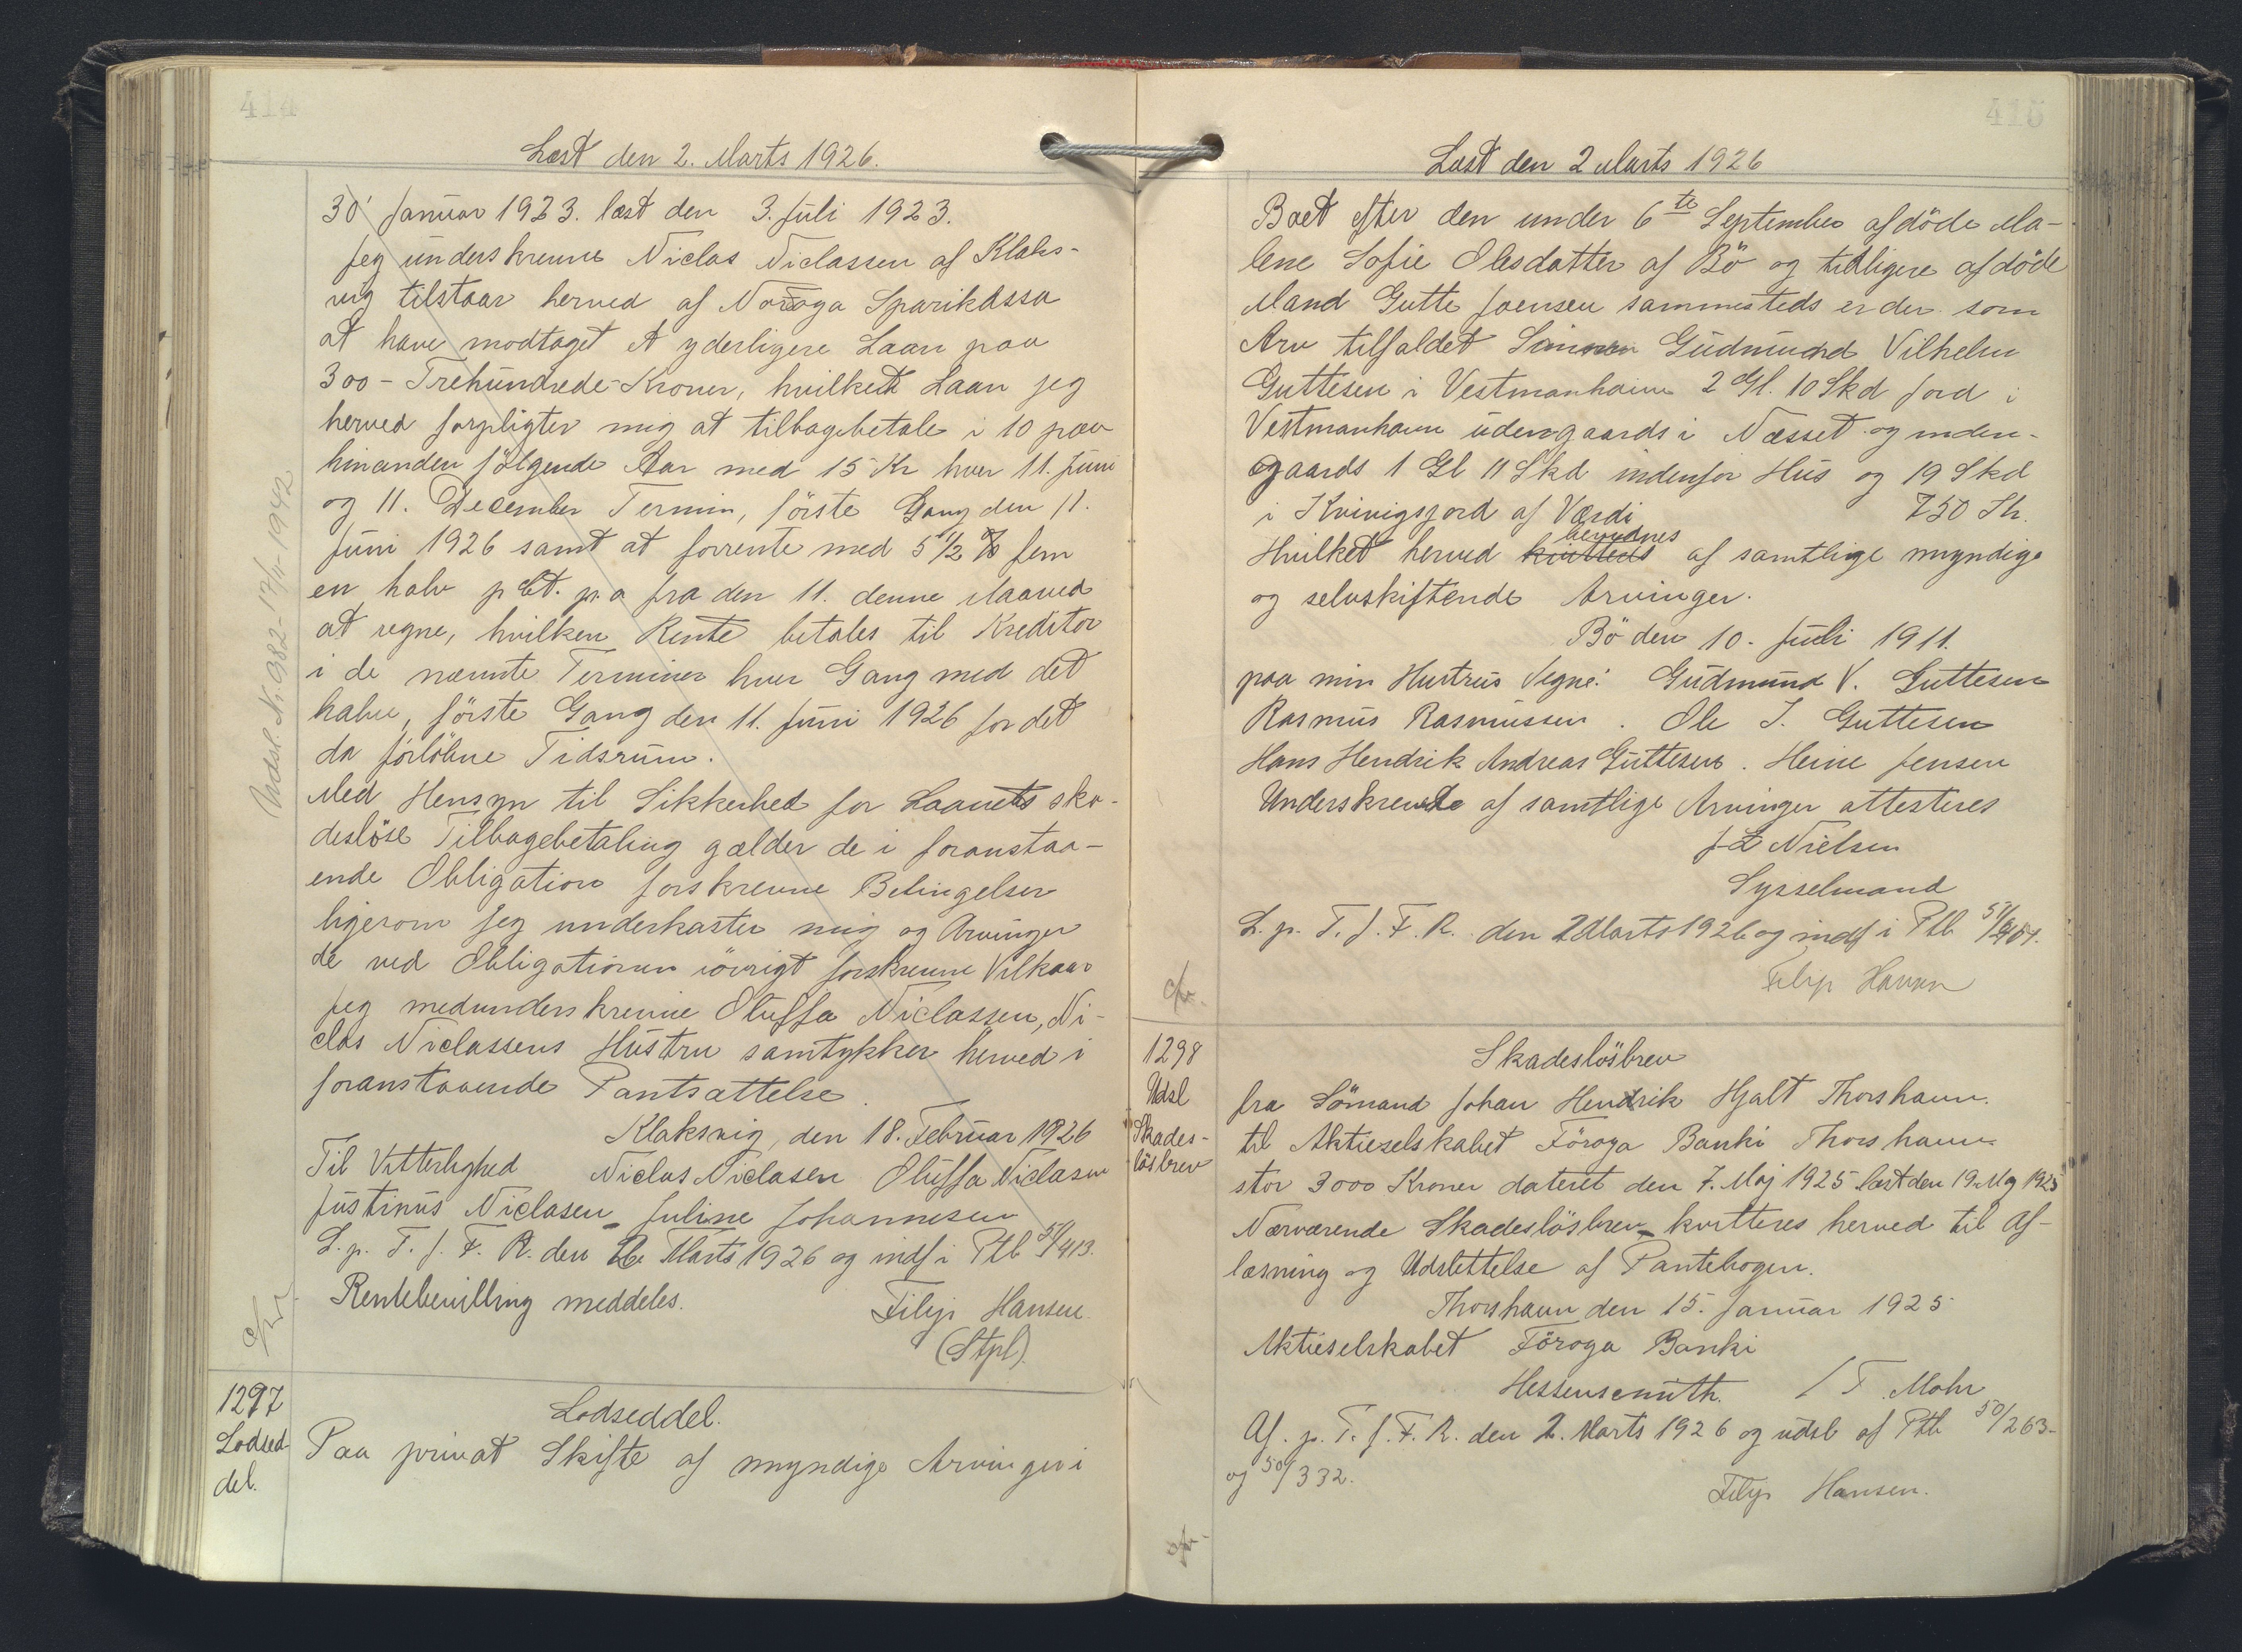 414
Læst den 2. Marts 1926.
30 Januar 1923. læst den 3. Juli 1923.
Jeg underskrevne Niclas Niclassen af Klaks-
vig tilstaar herved af Noroya Sparikassa
at have modtaget et yderligere Laan paa
300 - Trehundrede - Kroner, hvilket Laan jeg
herved forpligter mig at tilbagebetale i 10 paa
hinanden følgende Aar med 15 Kr hver 11. Juni
og 11. December Termin, förste Gang den 11.
Juni 1926 samt at forrente med 5 1/2 % fem
en halv p Ct. p. a fra den 11. denne Maaned
at regne, hvilken Rente betales til Kreditor
i de nævnte Terminer hver Gang med det
halve, förste Gang den 11. Juni 1926 for det
da forløbne Tidsrum.
Med Hensyn til Sikkerhed for Laanets ska-
deslöse Tilbagebetaling gælder de i foranstaa-
ende Obligation forskrevne Betingelser
ligesom jeg underkaster mig og Arvinger
de ved Obligationen iövrigt forskrevne Vilkaar
Jeg medunderskrevne Oluffa Niclassen, Ni-
clas Niclassens Hustru samtykker herved i
foranstaaende Pantsættelse.
Klaksvig, den 18. Februar 1926
Til Vitterlighed Niclas Niclasen Oluffa Niclasen
Justinus Niclasen Juline Johannesen
L. p. T. f. F. R. den 2. Marts 1926 og indf i Ptb 51/413.
Rentebevilling meddeles. Filip Hansen
(Stpl).
Udsl. Nr 982 - 17/11-1942
cfr
1297
Lodsed-
del.
Lodseddel.
Paa privat Skifte af myndige Arvinger i
415
Læst den 2 Marts 1926
Boet efter den under 6te September afdöde Ma-
lene Sofie Olesdatter af Bö og tidligere afdöde
Mand Gutte Joensen sammesteds er der som
Arv tilfaldet Sönnen Gudmund Vilhelm
Guttesen i Vestmanhavn 2 Gl. 10 Skd Jord i
Vestmanhavn udengaards i Næsset og inden-
gaards 1 Gl 11 Skd indenfor Hus og 19 Skd
i Kvivigsjord af Værdi 750 Kr.
bevidnes
Hvilket herved kvitteds af samtlige myndige
og selvskiftende Arvinger.
Bö den 10. Juli 1911.
paa min Hustrus Vegne: Gudmund V. Guttesen
Rasmus Rasmussen. Ole J. Guttesen
Hans Hendrik Andreas Guttesen. Heine Jensen
Underskrevet af samtlige Arvinger attesteres
J L Nielsen
Sysselmand
L. p. T. f. F. R. den 2 Marts 1926 og indf i Ptb 51/
Filip Hansen
cfr.
1298
Udsl
Skades-
lösbrev
Skadeslösbrev
fra Sömand Johan Hendrik Hjalt Thorshavn.
til Aktieselskabet Föroya Banki Thorshavn
stor 3000 Kroner dateret den 7. Maj 1925 læst den 19. Maj 1925
Nærværende Skadeslösbrev kvitteres herved til Af-
læsning og Udslettelse af Pantebogen.
Thorshavn den 15. Januar 1925
Aktieselskabet Föroya Banki
Hessensemuth. / T. Mohr
Af. p. T. f. F. R. den 2. Marts 1926 og udsl af Ptb 50/263-
og 50/332.
Filip Hansen.
cfr